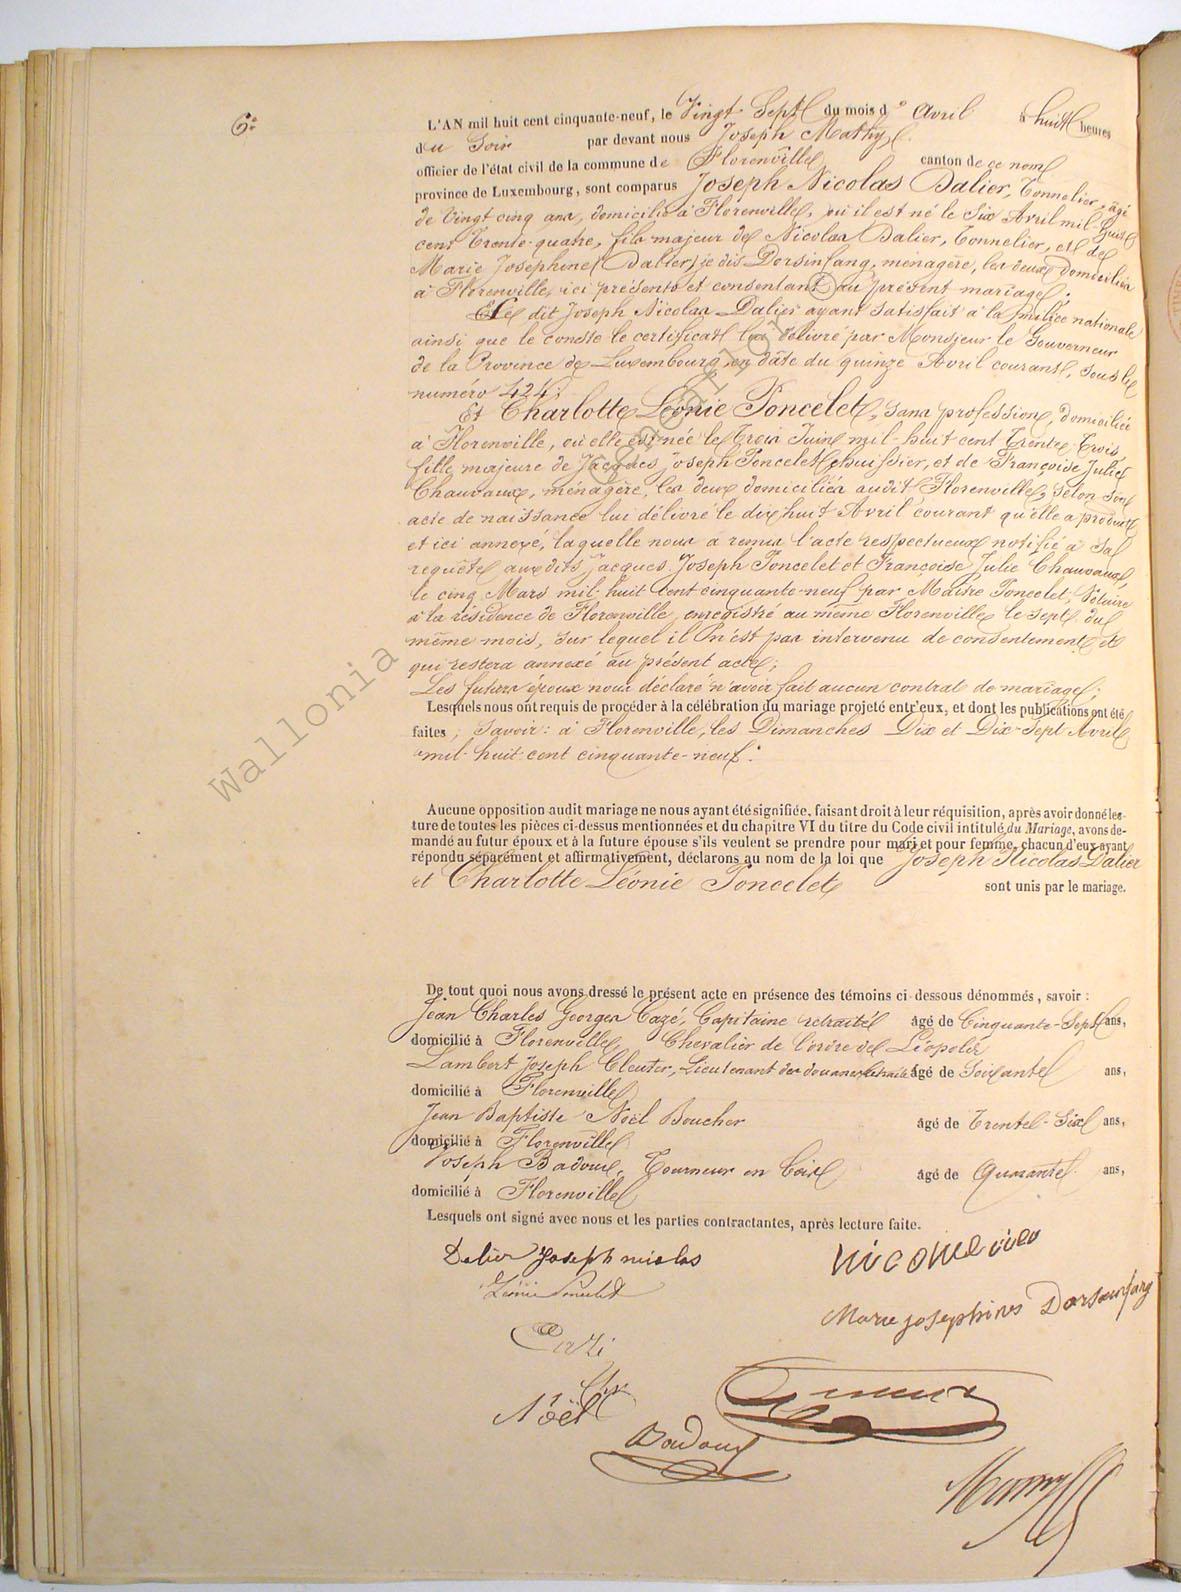 6°
L'AN mil huit cent cinquante-neuf, le Vingt Sept du mois d'Avril à huit heures
du Soir par devant nous Joseph Mathy
officier de l'état civil de la commune de Florenville canton de ce nom
province de Luxembourg, sont comparus Joseph Nicolas Dalier, Tonnelier, âgé
de Vingt cinq ans, domicilié à Florenville, où il est né le Six Avril mil-huit
cent Trente-quatre, fils majeur de Nicolas Dalier, Tonnelier, et de
Marie Josephine (Dalier) je dis Dorsinfang, ménagère, les deux domiciliés
à Florenville, ici présents et consentant au présent mariage;
Le dit Joseph Nicolas Dalier ayant satisfait à la milice nationale
ainsi que le conste le certificat lui délivré par Monsieur le Gouverneur
de la Province de Luxembourg en date du quinze Avril courant, sous le
numéro 424;
Et Charlotte Léonie Poncelet, sans profession, domiciliée
à Florenville, où elle est née le Trois Juin mil-huit cent Trente-Trois,
fille majeure de Jacques Joseph Poncelet huissier, et de Françoise Julie
Chauvaux, ménagère, les deux domiciliés audit Florenville, selon son
acte de naissance lui délivré le dix huit Avril courant qu'elle a produit
et ici annexé, laquelle nous a remis l'acte respectueux notifié à sa
requête auxdits Jacques Joseph Poncelet et Françoise Julie Chauvaux,
le cinq Mars mil-huit cent cinquante-neuf par Maître Poncelet, Notaire
à la résidence de Florenville, enregistré au même Florenville le sept du
même mois, sur lequel il n'est pas intervenu de consentement et
qui restera annexé au présent acte;
Les futurs époux nous déclaré n'avoir fait aucun contrat de mariage;
Lesquels nous ont requis de procéder à la célébration du mariage projeté entr'eux, et dont les publications ont été
faites, Savoir: à Florenville, les Dimanches Dix et Dix-Sept Avril
mil-huit cent cinquante-neuf.
Aucune opposition audit mariage ne nous ayant été signifiée, faisant droit à leur réquisition, après avoir donné lec-
ture de toutes les pièces ci-dessus mentionnées et du chapitre VI du titre du Code civil intitulé du Mariage, avons de-
mandé au futur époux et à la future épouse s'ils veulent se prendre pour mari et pour femme, chacun d'eux ayant
répondu séparément et affirmativement, déclarons au nom de la loi que Joseph Nicolas Dalier
et Charlotte Léonie Poncelet sont unis par le mariage.
De tout quoi nous avons dressé le présent acte en présence des témoins ci-dessous dénommés, savoir :
Jean Charles Georges Cazé, Capitaine retraité âgé de Cinquante-Sept ans,
domicilié à Florenville, Chevalier de l'ordre de Léopold
Lambert Joseph Cleuter, Lieutenant des douanes retraité âgé de Soixante ans,
domicilié à Florenville
Jean Baptiste Noël Boucher âgé de Trente-Six ans,
domicilié à Florenville
Joseph Badoux, Tourneur en bois âgé de Quarante ans,
domicilié à Florenville
Lesquels ont signé avec nous et les parties contractantes, après lecture faite.
Dalier Joseph nicolas
Léonie Poncelet
Marie josephines Dorsaenfang
Cazé
Noël
Badoux
Geneanior
Wallonia